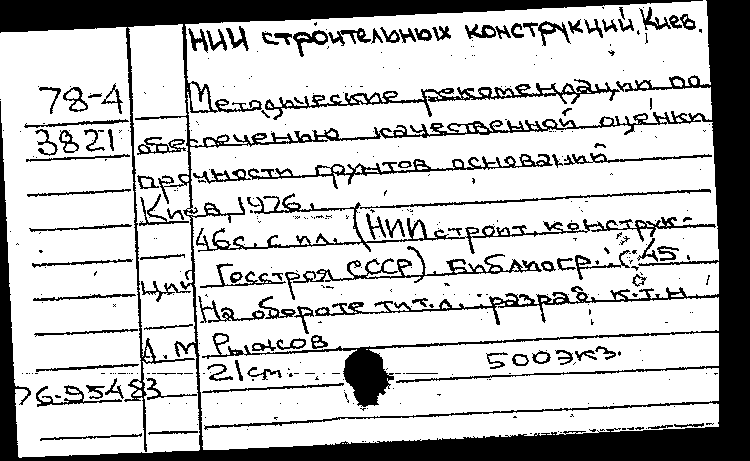 НИИ строительных конструкций. Киев.
78-4 Методические рекомендации по
3821 обеспечению качественной оценки
прочности грунтов оснований
Киев, 1976.
46с. с ил. (НИИ строит. конструк-
ций Госстроя СССР). Библиогр.: с. 45.
На обороте тит.л.: разраб. к.т.н
А.М Рыжов.
21см. 500экз.
76-95483